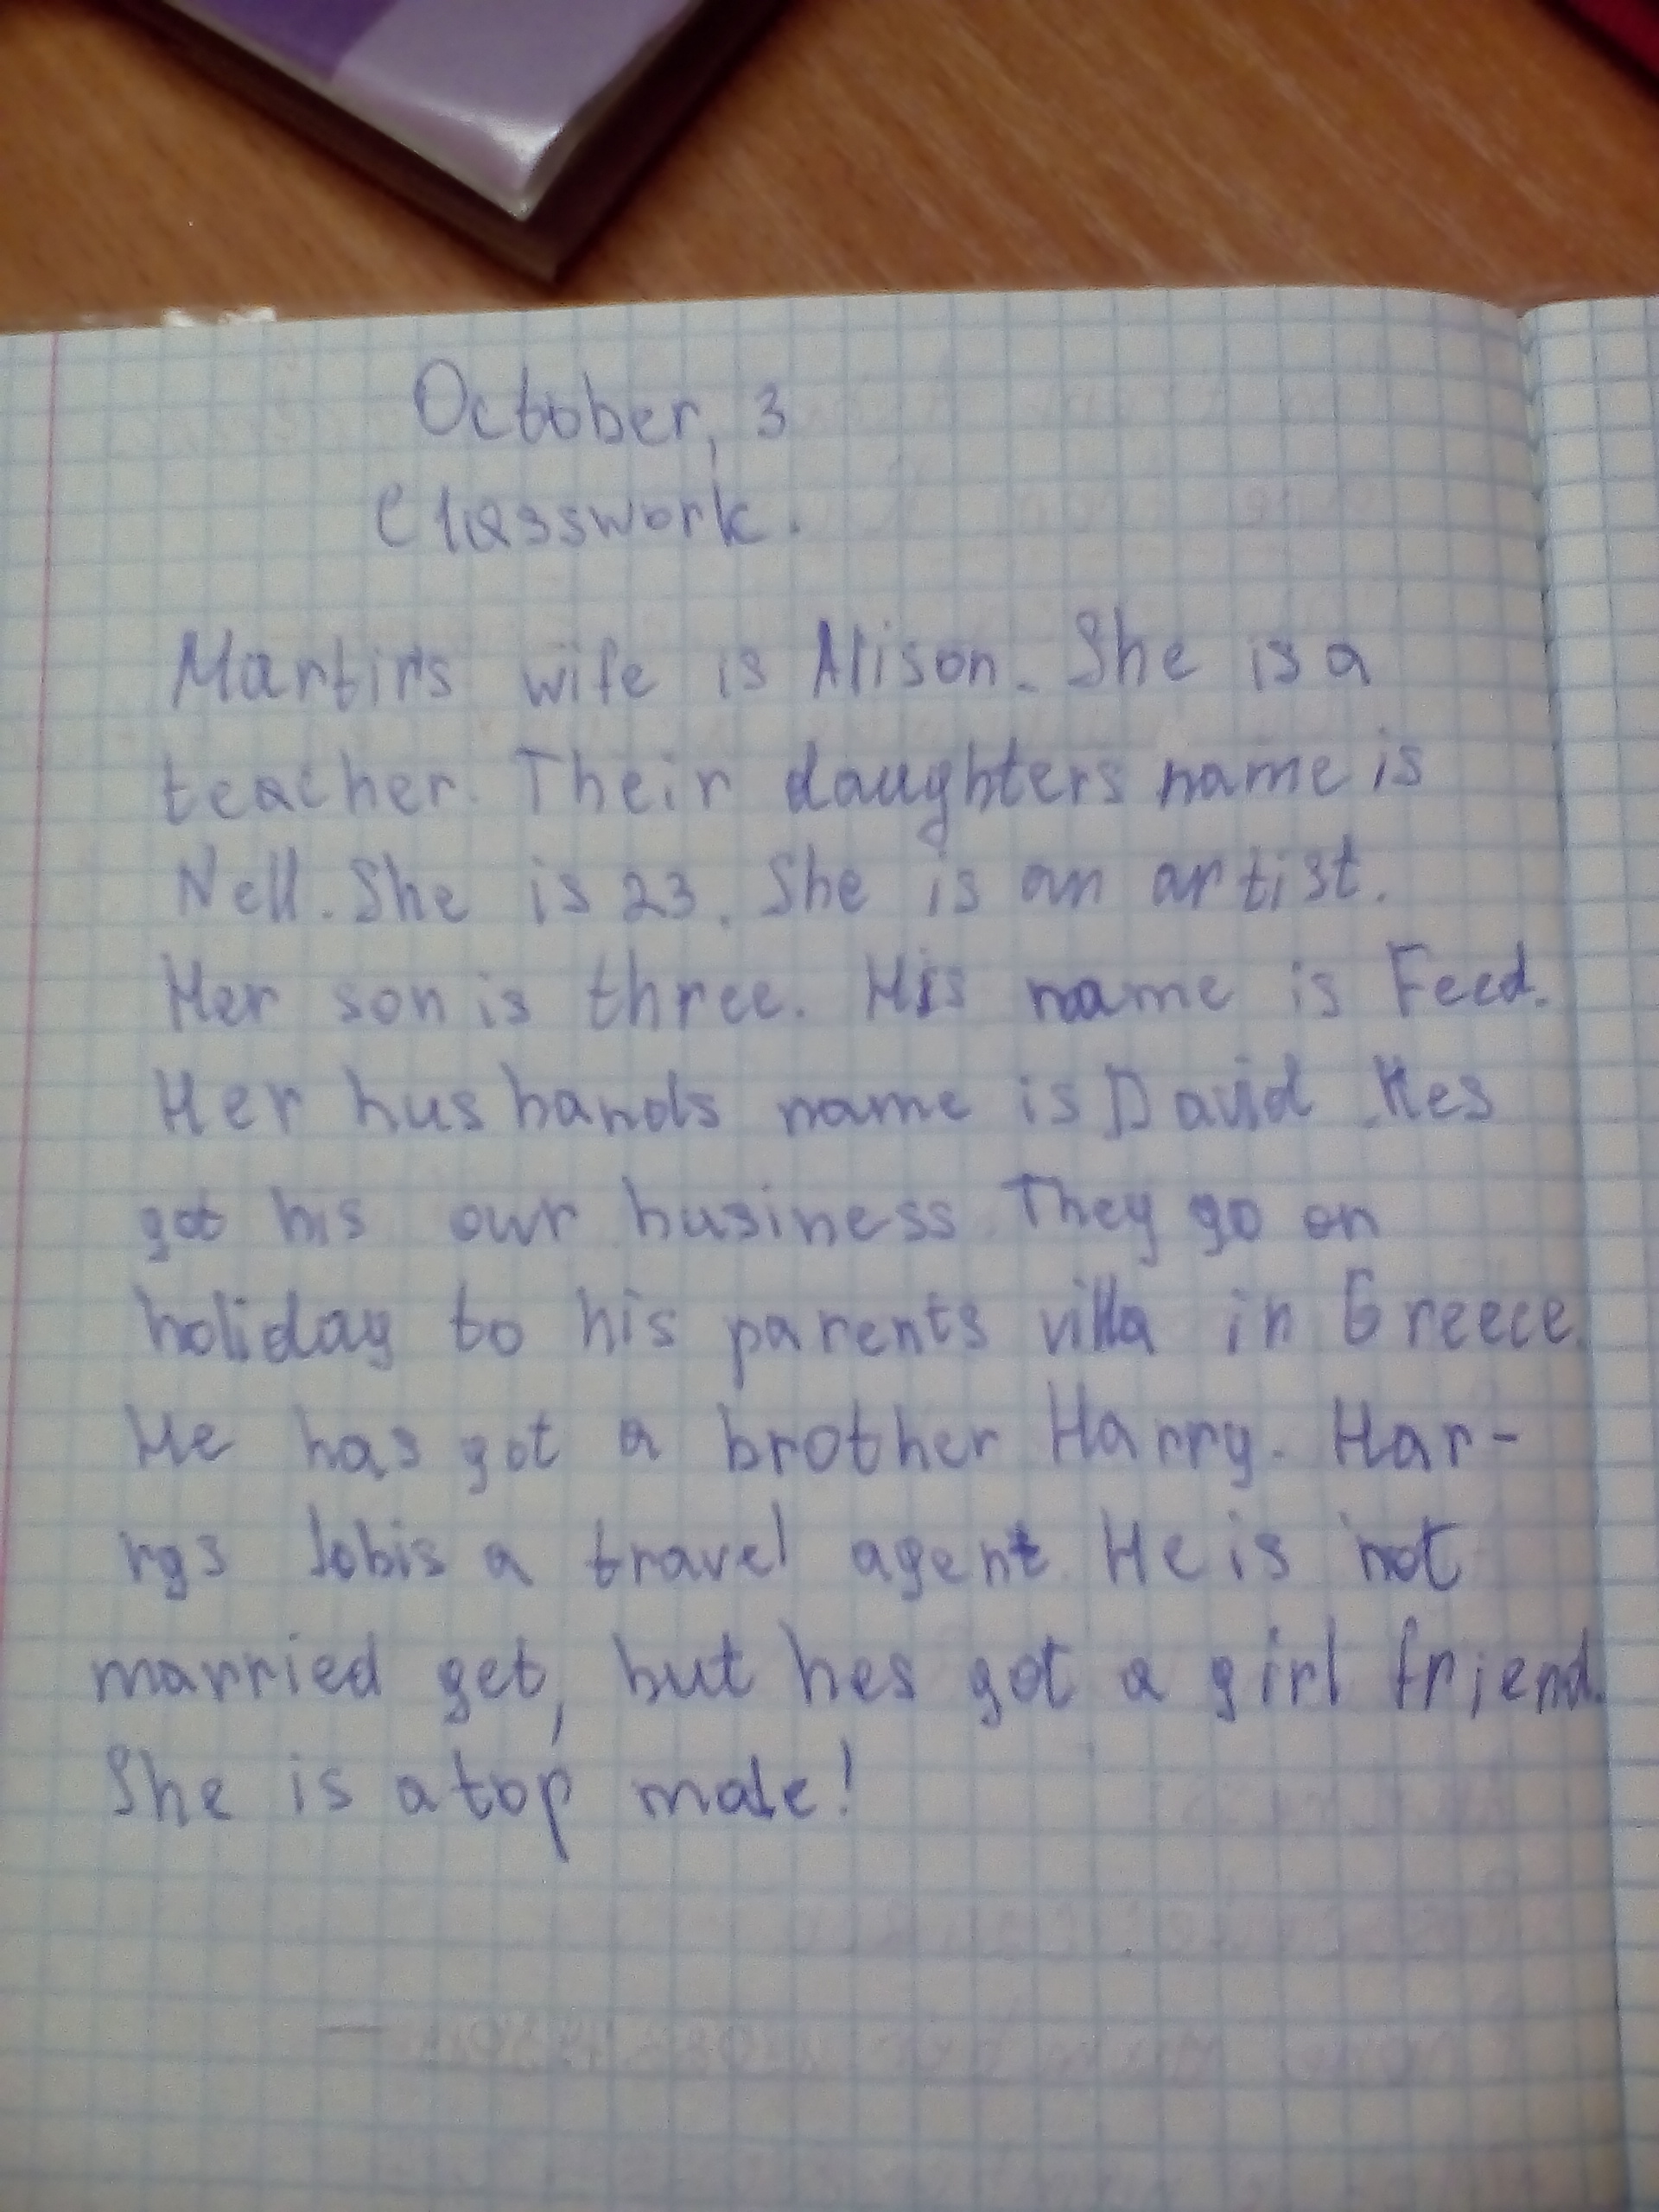 October, 3
Classwork.
Martin's wife is Alison. She is a
teacher. Their daughters name is
Nell. She is 23. She is an artist.
Her son is three. His name is Feed.
Her husbands name is David. Hes
got his own business They go on
holiday to his parents villa in Greece.
He has got a brother Harry. Har-
rys Jobis a travel agent. He is not
married get, but hes got a girl friend.
She is a top male!